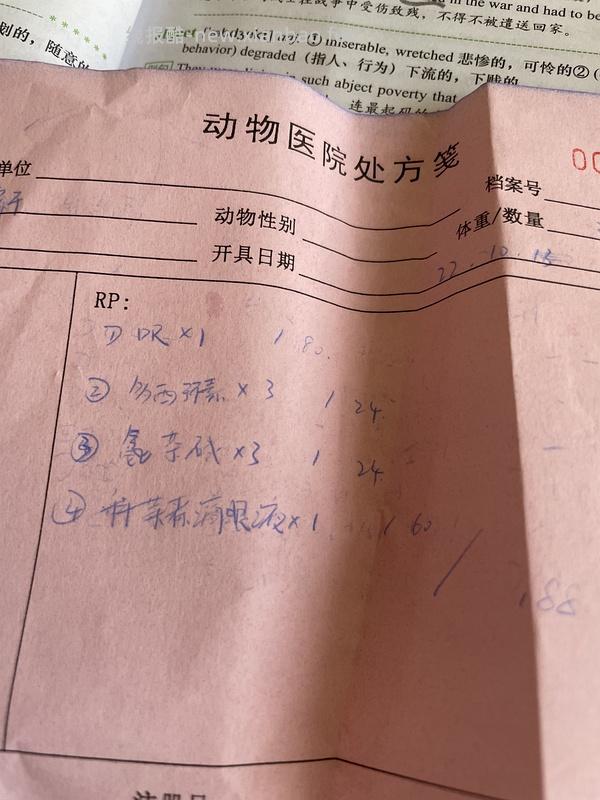 在战争中受伤致残，不得不被遣送回家。
in the war and had to be
① miserable, wretched 悲惨的，可怜的②
划的，随意的
behavior) degraded（指人、行为）下流的，下贱的
in such abject poverty that
动物医院处方笺
档案号
单位
动物性别
体重/数量
开具日期
22.10.15
RP:
① DR×1 / 80.
② 多西环素×3 / 24.
③ 氨茶碱×3 / 24.
滴眼液×1 / 60
/ 188
注册号